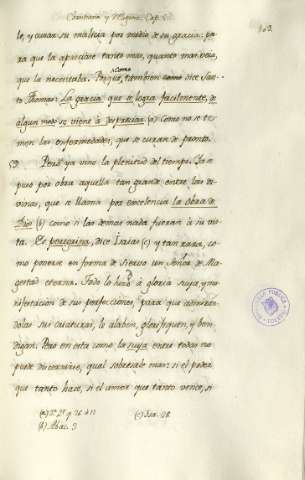 Christiana y Mystica. Cap. 5.
303.
le, y curan su maleza por medio de su gracia: pa
ra que la apreciase tanto mas, quanto mas veia,
que la necesitaba. Porque, como dice San-
to Thomas: La gracia que se logra facilmente, de
algun modo se viene à despreciar. (a) Como no se te-
men las enfermedades, que se curan de pronto.
59. Pero ya vino la plenitud del tiempo. Ya
puso por obra aquella tan grande entre las di-
vinas, que se llama por excelencia la obra de
Dios (b) como si las demas nada fueran à su vis-
ta. Es peregrina, dice Isaias (c) y tan rara, co-
mo ponerse en forma de siervo un Señor de Ma-
gestad eterna. Todo lo hizo à gloria suya, y ma-
nifestacion de sus perfecciones, para que admiran-
dolas sus criaturas, lo alaben, glorifiquen, y ben-
digan. Pero en esta como la suya entre todas no
puede discernirse, qual sobresale mas: si el poder
que tanto hace, si el amor que tanto vence, si
(b) Abac. 3
(c) Isa. 28